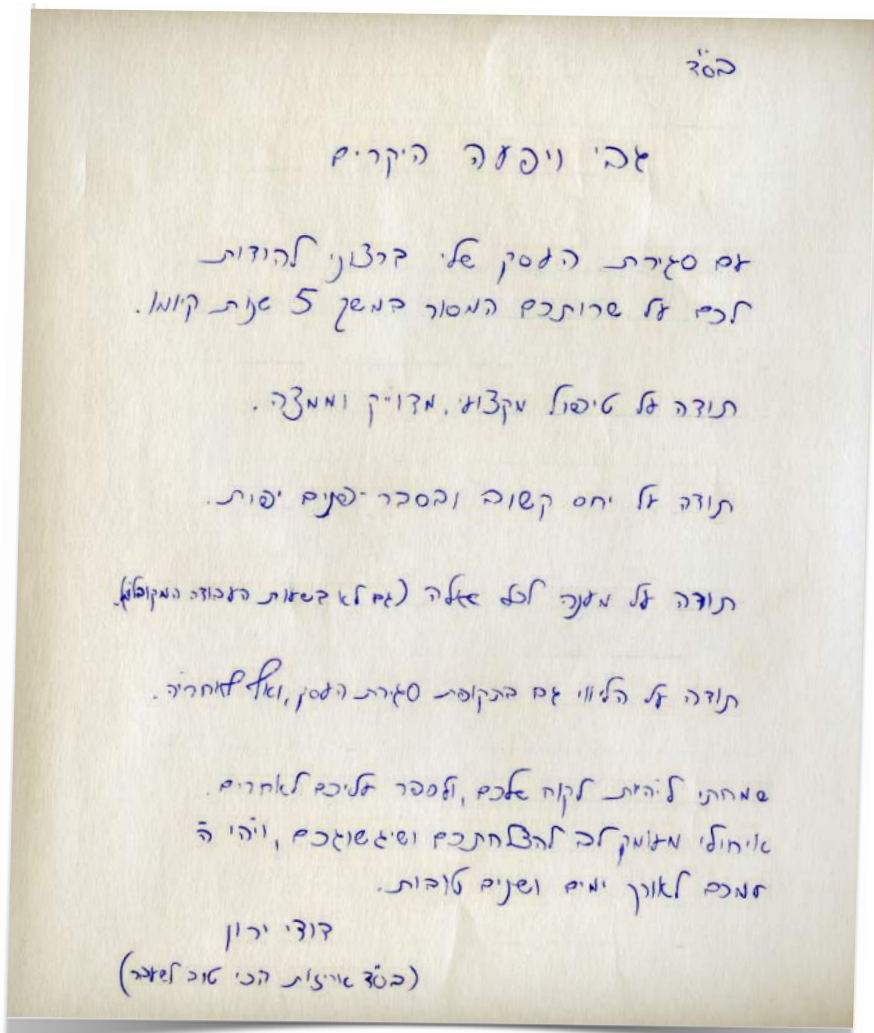 בס"ד
גבי ויפעה היקרים
עם סגירת העסק שלי ברצוני להודות
לכם על שרותכם המסור במשך 5 שנות קיומו.
תודה על טיפול מקצועי, מדוייק וממצה.
תודה על יחס קשוב ובסבר-פנים יפות.
תודה על מענה לכל שאלה (גם לא בשעות העבודה המקובלות).
תודה על הליווי גם בתקופת סגירת העסק, ואף לאחריה.
שמחתי להיות לקוח שלכם, ולספר עליכם לאחרים.
איחולי מעומק לב להצלחתכם ושיגשוגכם, ויהי ה'
עמכם לאורך ימים ושנים טובות.
דודי ירון
(בס"ד אריזות הכי טוב לשעבר)